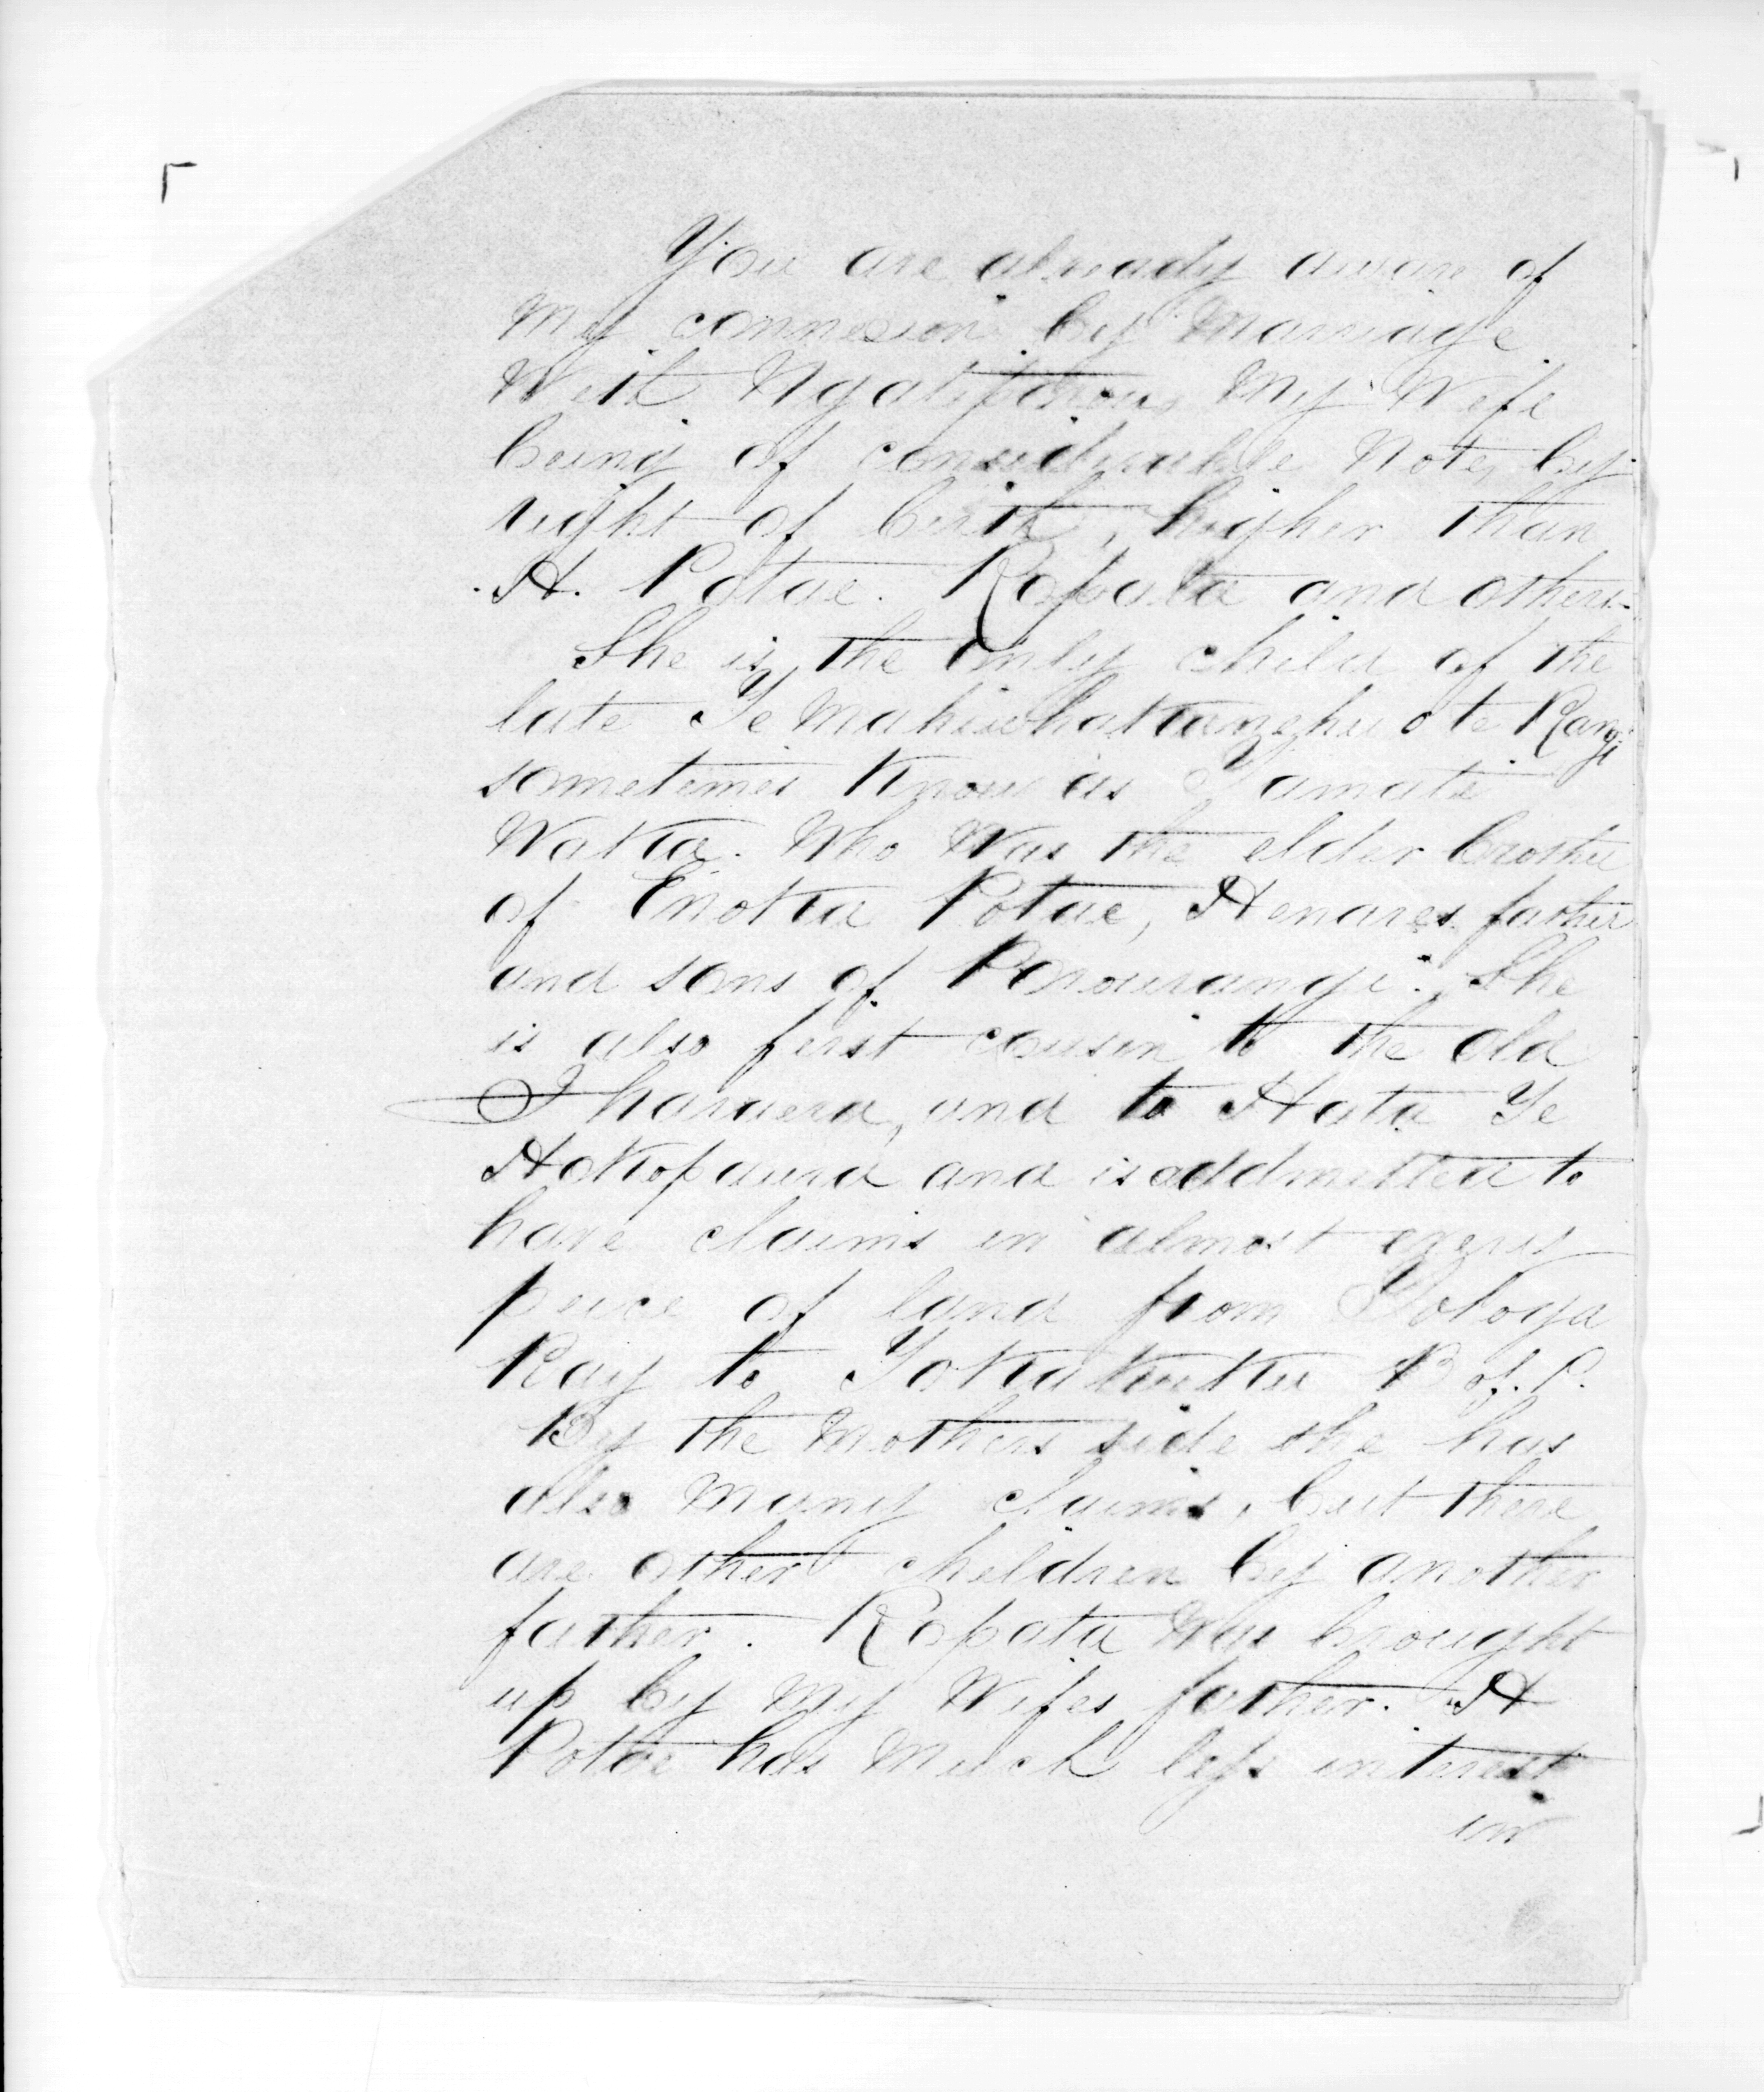 You are already aware of
my connexion by Marriage
With Ngatiporou, My Wife
being of considerable Note, by
right of birth, higher than
H. Potae. Ropata and others.
She is, the only child of the
late Te o te Rangi
sometimes Know as
Waka. Who Was the elder brother
of Enoka Potae, Henares father
and sons of Porourangi. She
is also first cousin to the old
I haraera, and to Hata Te
Hokopaura and is addmitted to
have claims in almost every
peice of land from Tologa
Bay to Tokakuku B of P.
By the Mothers side she has
also many claims, but there
are other children by another
father. Ropata Was brought
up by My Wifes father. H
Potae has Much less interest
in